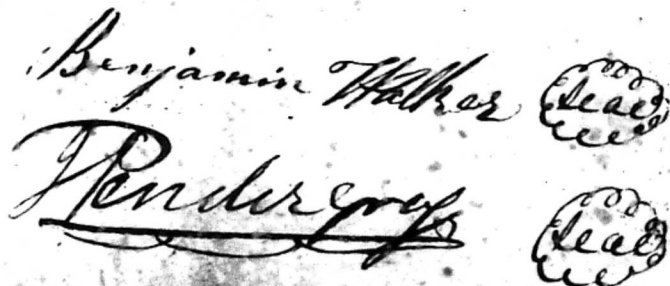 Benjamin Walker seal
J Pendergrass seal